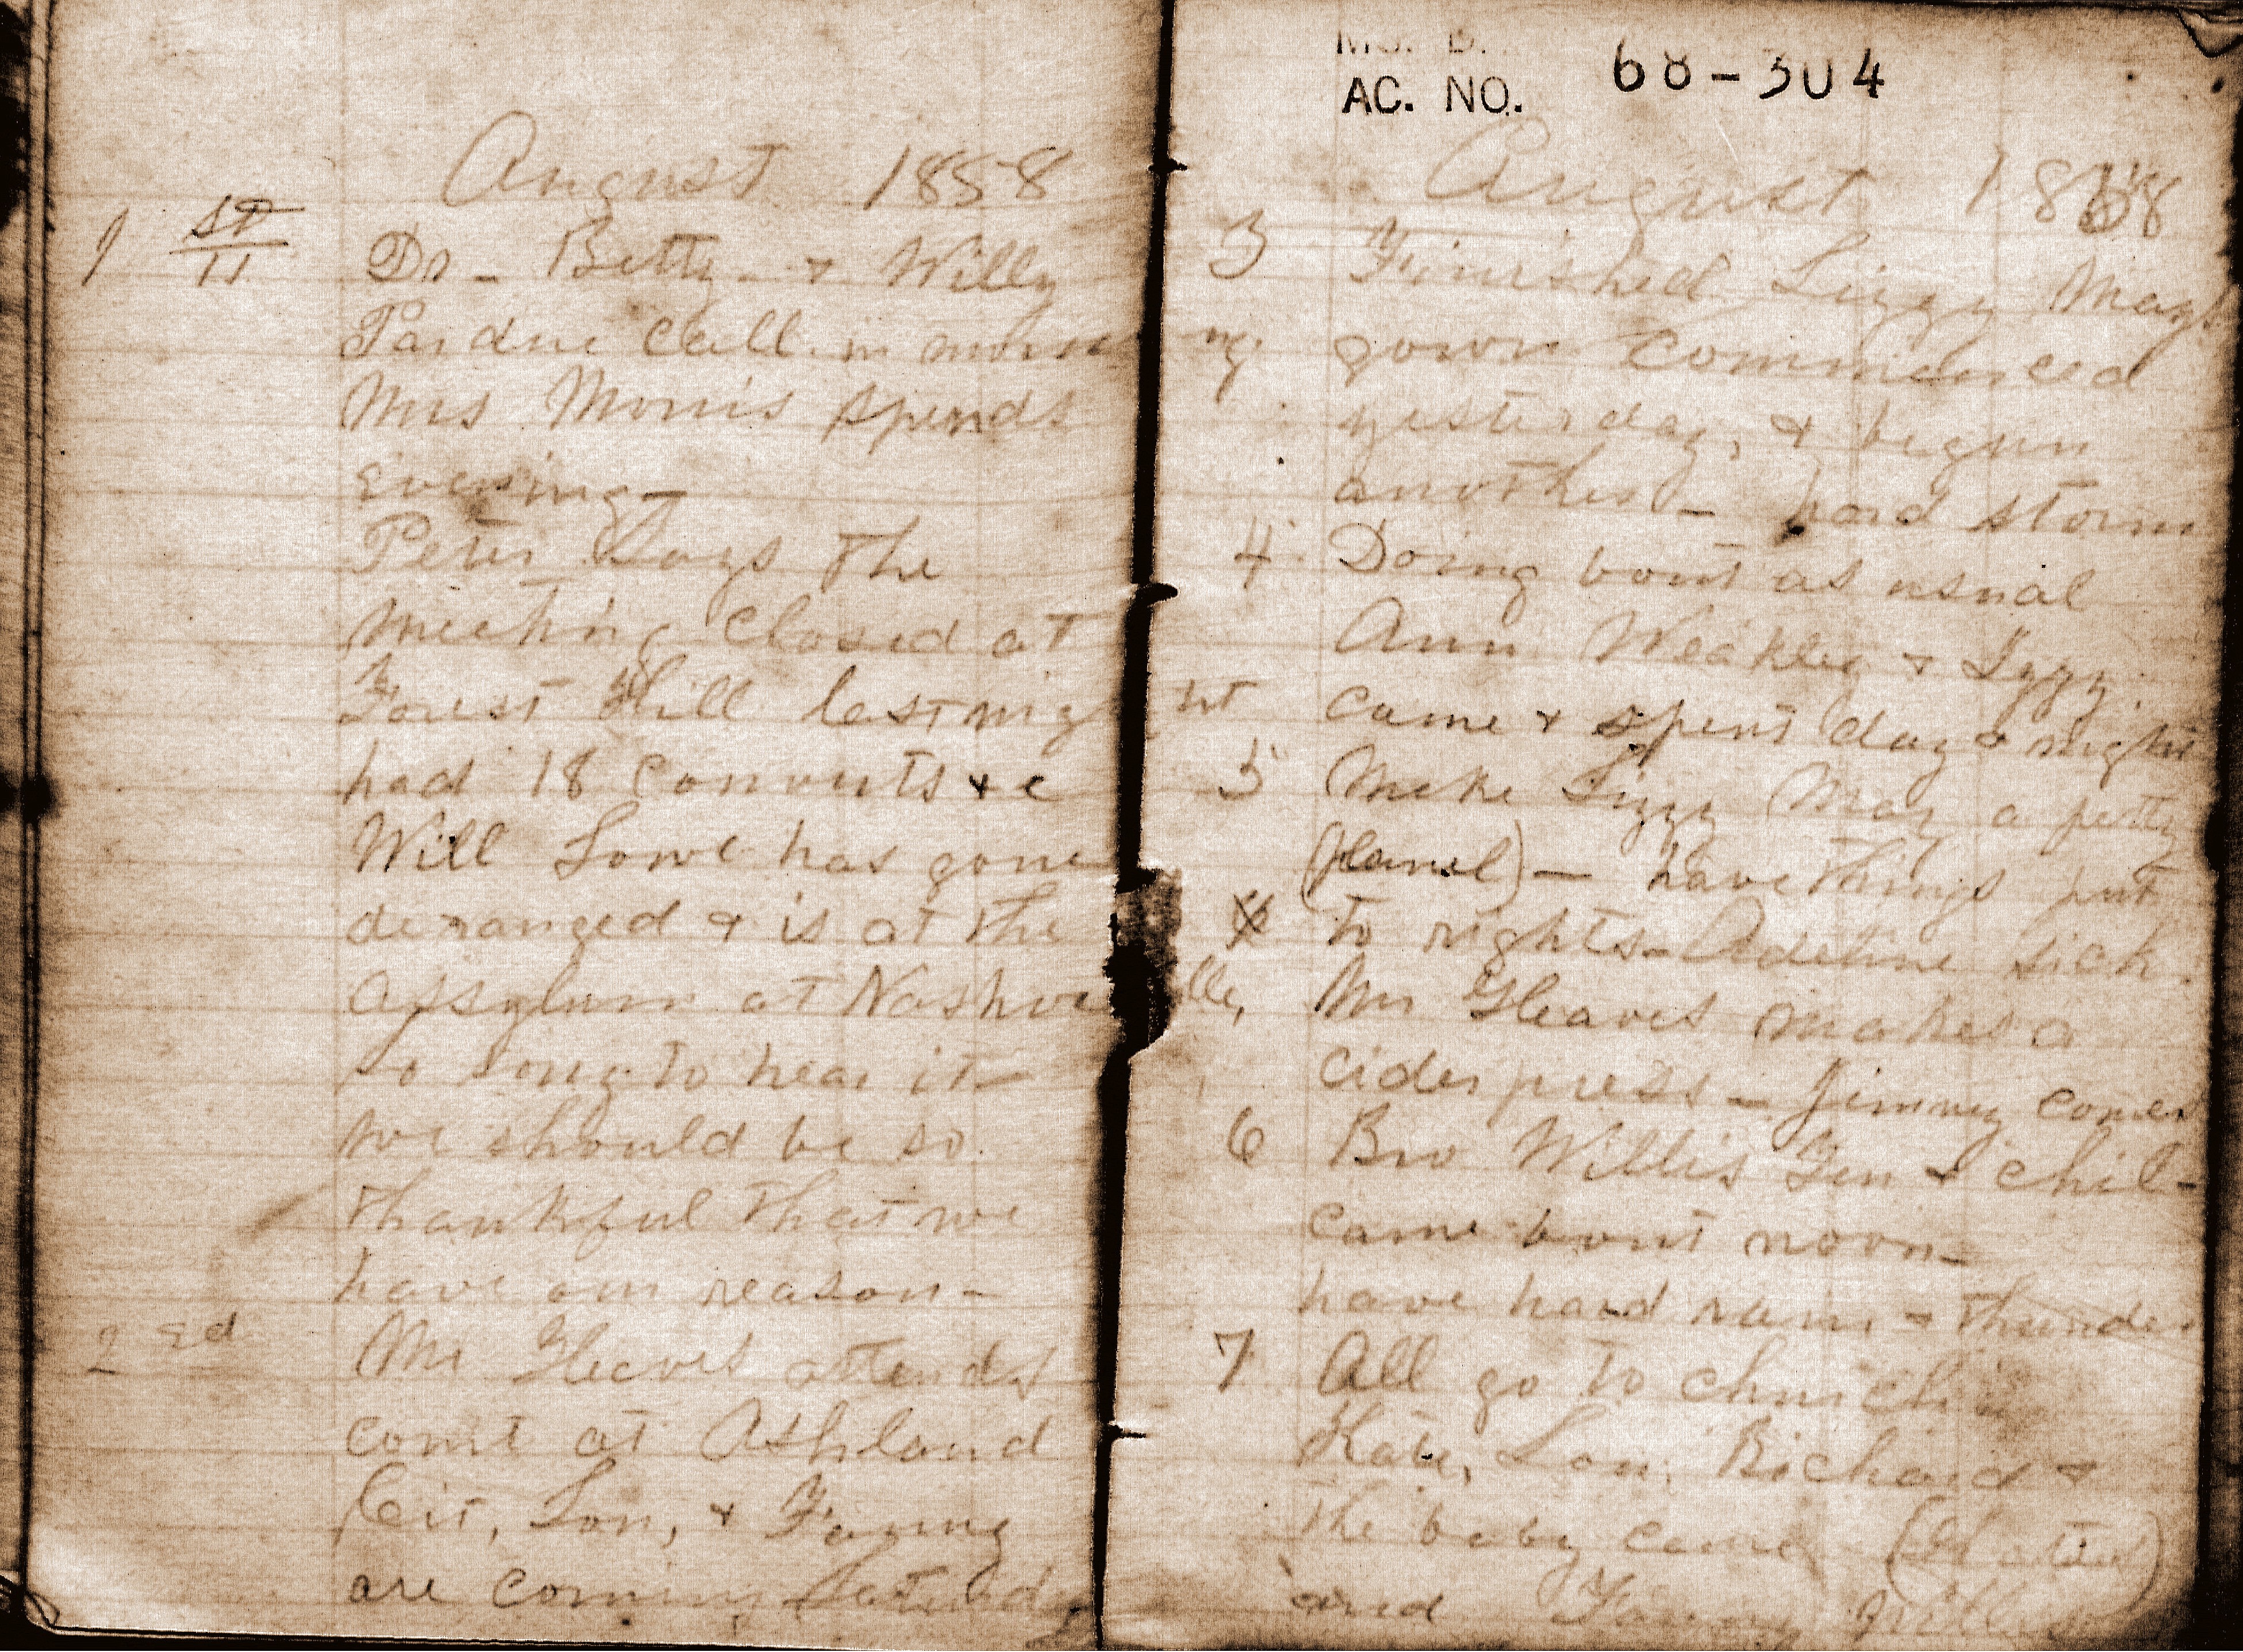 August 1858
1 st
Dr - Betty - & Willy
Pardue call in morning
Mrs Morris spends
evening -
Peter Says the
meeting closed at
Forest Hill last night
had 18 converts & c
Will Lowe has gone
deranged & is at the
assylum at Nashville,
so sorry to hear it -
we should be so
thankful that we
have our reason -
2 ed Mr Gleaves attends
court at Ashland
Cit, Lon, & Fanny
are coming
MS. B.
AC. NO. 68-304
August 1858
3 Finished Lizzy Mays
gown commenced
yesterday, & begun
another - hard storm
4 Doing bout as usual
Ann Weakley & Izzy
came & spent day & night
5 Make Lizzy May a petty
(flanel) - have things put
to rights - Adeline sick.
Mr Gleaves makes a
cider press - Jimmy comes
6 Bro Willis & chil-
came bout noon -
have hard rain & thunder
7 All go to church
Kate, Lon, Richard &
the baby came
and Fanny